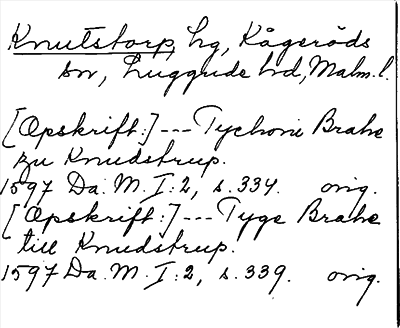 Knutstorp, hg, Kågeröds
sn, Luggude hd, Malm. l.
[Opskrift:] --- Tychoni Brahe
zu Knudstrup.
1597 Da. M. I: 2, s. 334. orig.
[Opskrift:] --- Tyge Brahe
till Knudstrup.
1597 Da. M. I: 2, s. 339. orig.